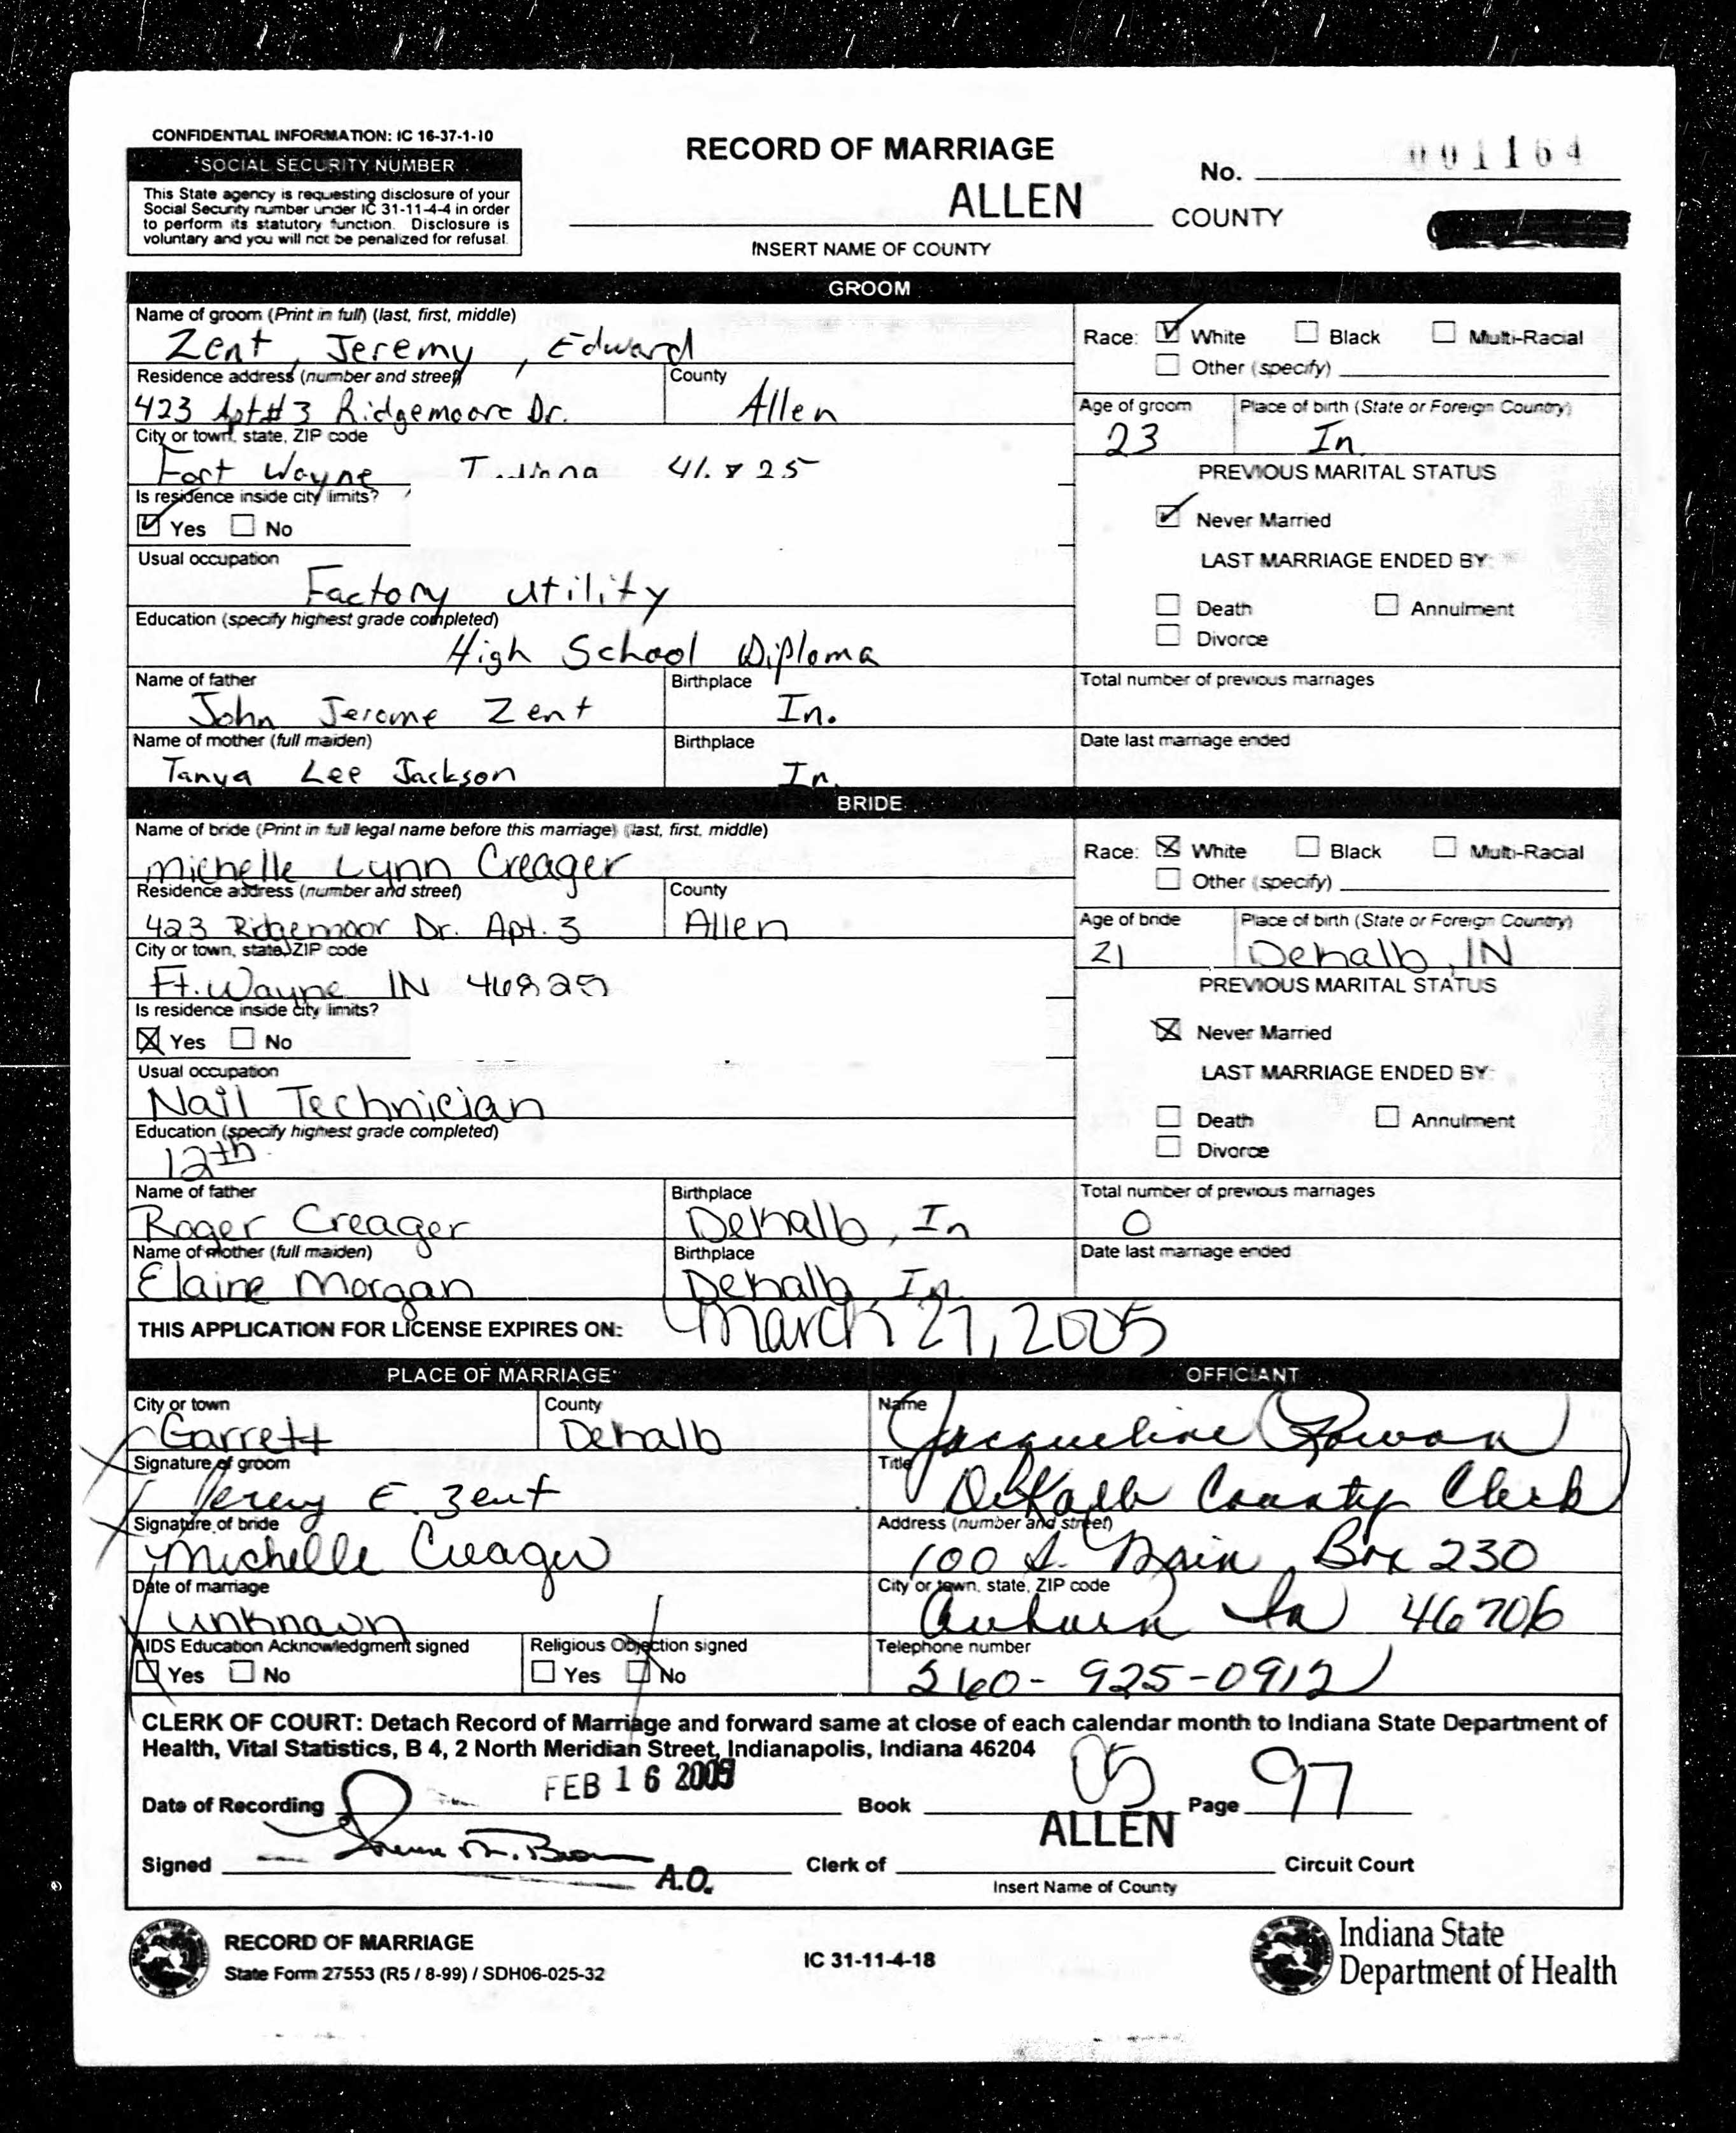 CONFIDENTIAL INFORMATION: IC 16-37-1-10
SOCIAL SECURITY NUMBER
This State agency is requesting disclosure of your
Social Security number under IC 31-11-4-4 in order
to perform its statutory function. Disclosure is
voluntary and you will not be penalized for refusal.
RECORD OF MARRIAGE
No. 001164
ALLEN COUNTY
INSERT NAME OF COUNTY
GROOM
Name of groom (Print in full) (last, first, middle)
Zent, Jeremy, Edward
Race: White Black Multi-Racial
Other (specify)
Residence address (number and street) County
423 Apt#3 Ridgemoore Dr. Allen
Age of groom Place of birth (State or Foreign Country)
23 In
City or town, state, ZIP code
Fort Wayne Indiana
PREVIOUS MARITAL STATUS
Is residence inside city limits?
Yes No
Never Married
Usual occupation
Factory utility
LAST MARRIAGE ENDED BY:
Death Annulment
Divorce
Education (specify highest grade completed)
High School Diploma
Name of father Birthplace Total number of previous marriages
John Jerome Zent In.
Name of mother (full maiden) Birthplace Date last marriage ended
Tanya Lee Jackson In.
BRIDE
Name of bride (Print in full legal name before this marriage) (last, first, middle)
Michelle Lynn Creager
Race: White Black Multi-Racial
Other (specify)
Residence address (number and street) County
423 Ridgemoor Dr. Apt. 3 Allen
Age of bride Place of birth (State or Foreign Country)
21 Dekalb, IN
City or town, state, ZIP code
Ft. Wayne IN 46825
PREVIOUS MARITAL STATUS
Is residence inside city limits?
Yes No
Never Married
Usual occupation
Nail Technician
LAST MARRIAGE ENDED BY:
Death Annulment
Divorce
Education (specify highest grade completed)
12th
Name of father Birthplace Total number of previous marriages
Roger Creager Dekalb, In 0
Name of mother (full maiden) Birthplace Date last marriage ended
Elaine Morgan Dekalb, In
THIS APPLICATION FOR LICENSE EXPIRES ON: March 27, 2005
PLACE OF MARRIAGE OFFICIANT
City or town County Name
Garrett Dekalb Jacqueline Rowan
Signature of groom Title
Jeremy E. Zent DeKalb County Clerk
Signature of bride Address (number and street)
Michelle Creager 100 S. Main Box 230
Date of marriage City or town, state, ZIP code
unknown Auburn In 46706
AIDS Education Acknowledgment signed Religious Objection signed Telephone number
Yes No Yes No 260-925-0912
CLERK OF COURT: Detach Record of Marriage and forward same at close of each calendar month to Indiana State Department of
Health, Vital Statistics, B 4, 2 North Meridian Street, Indianapolis, Indiana 46204
Date of Recording FEB 16 2005 Book 05 Page 97
Signed A.O. Clerk of ALLEN Circuit Court
Insert Name of County
RECORD OF MARRIAGE
State Form 27553 (R5 / 8-99) / SDH06-025-32
IC 31-11-4-18
Indiana State
Department of Health